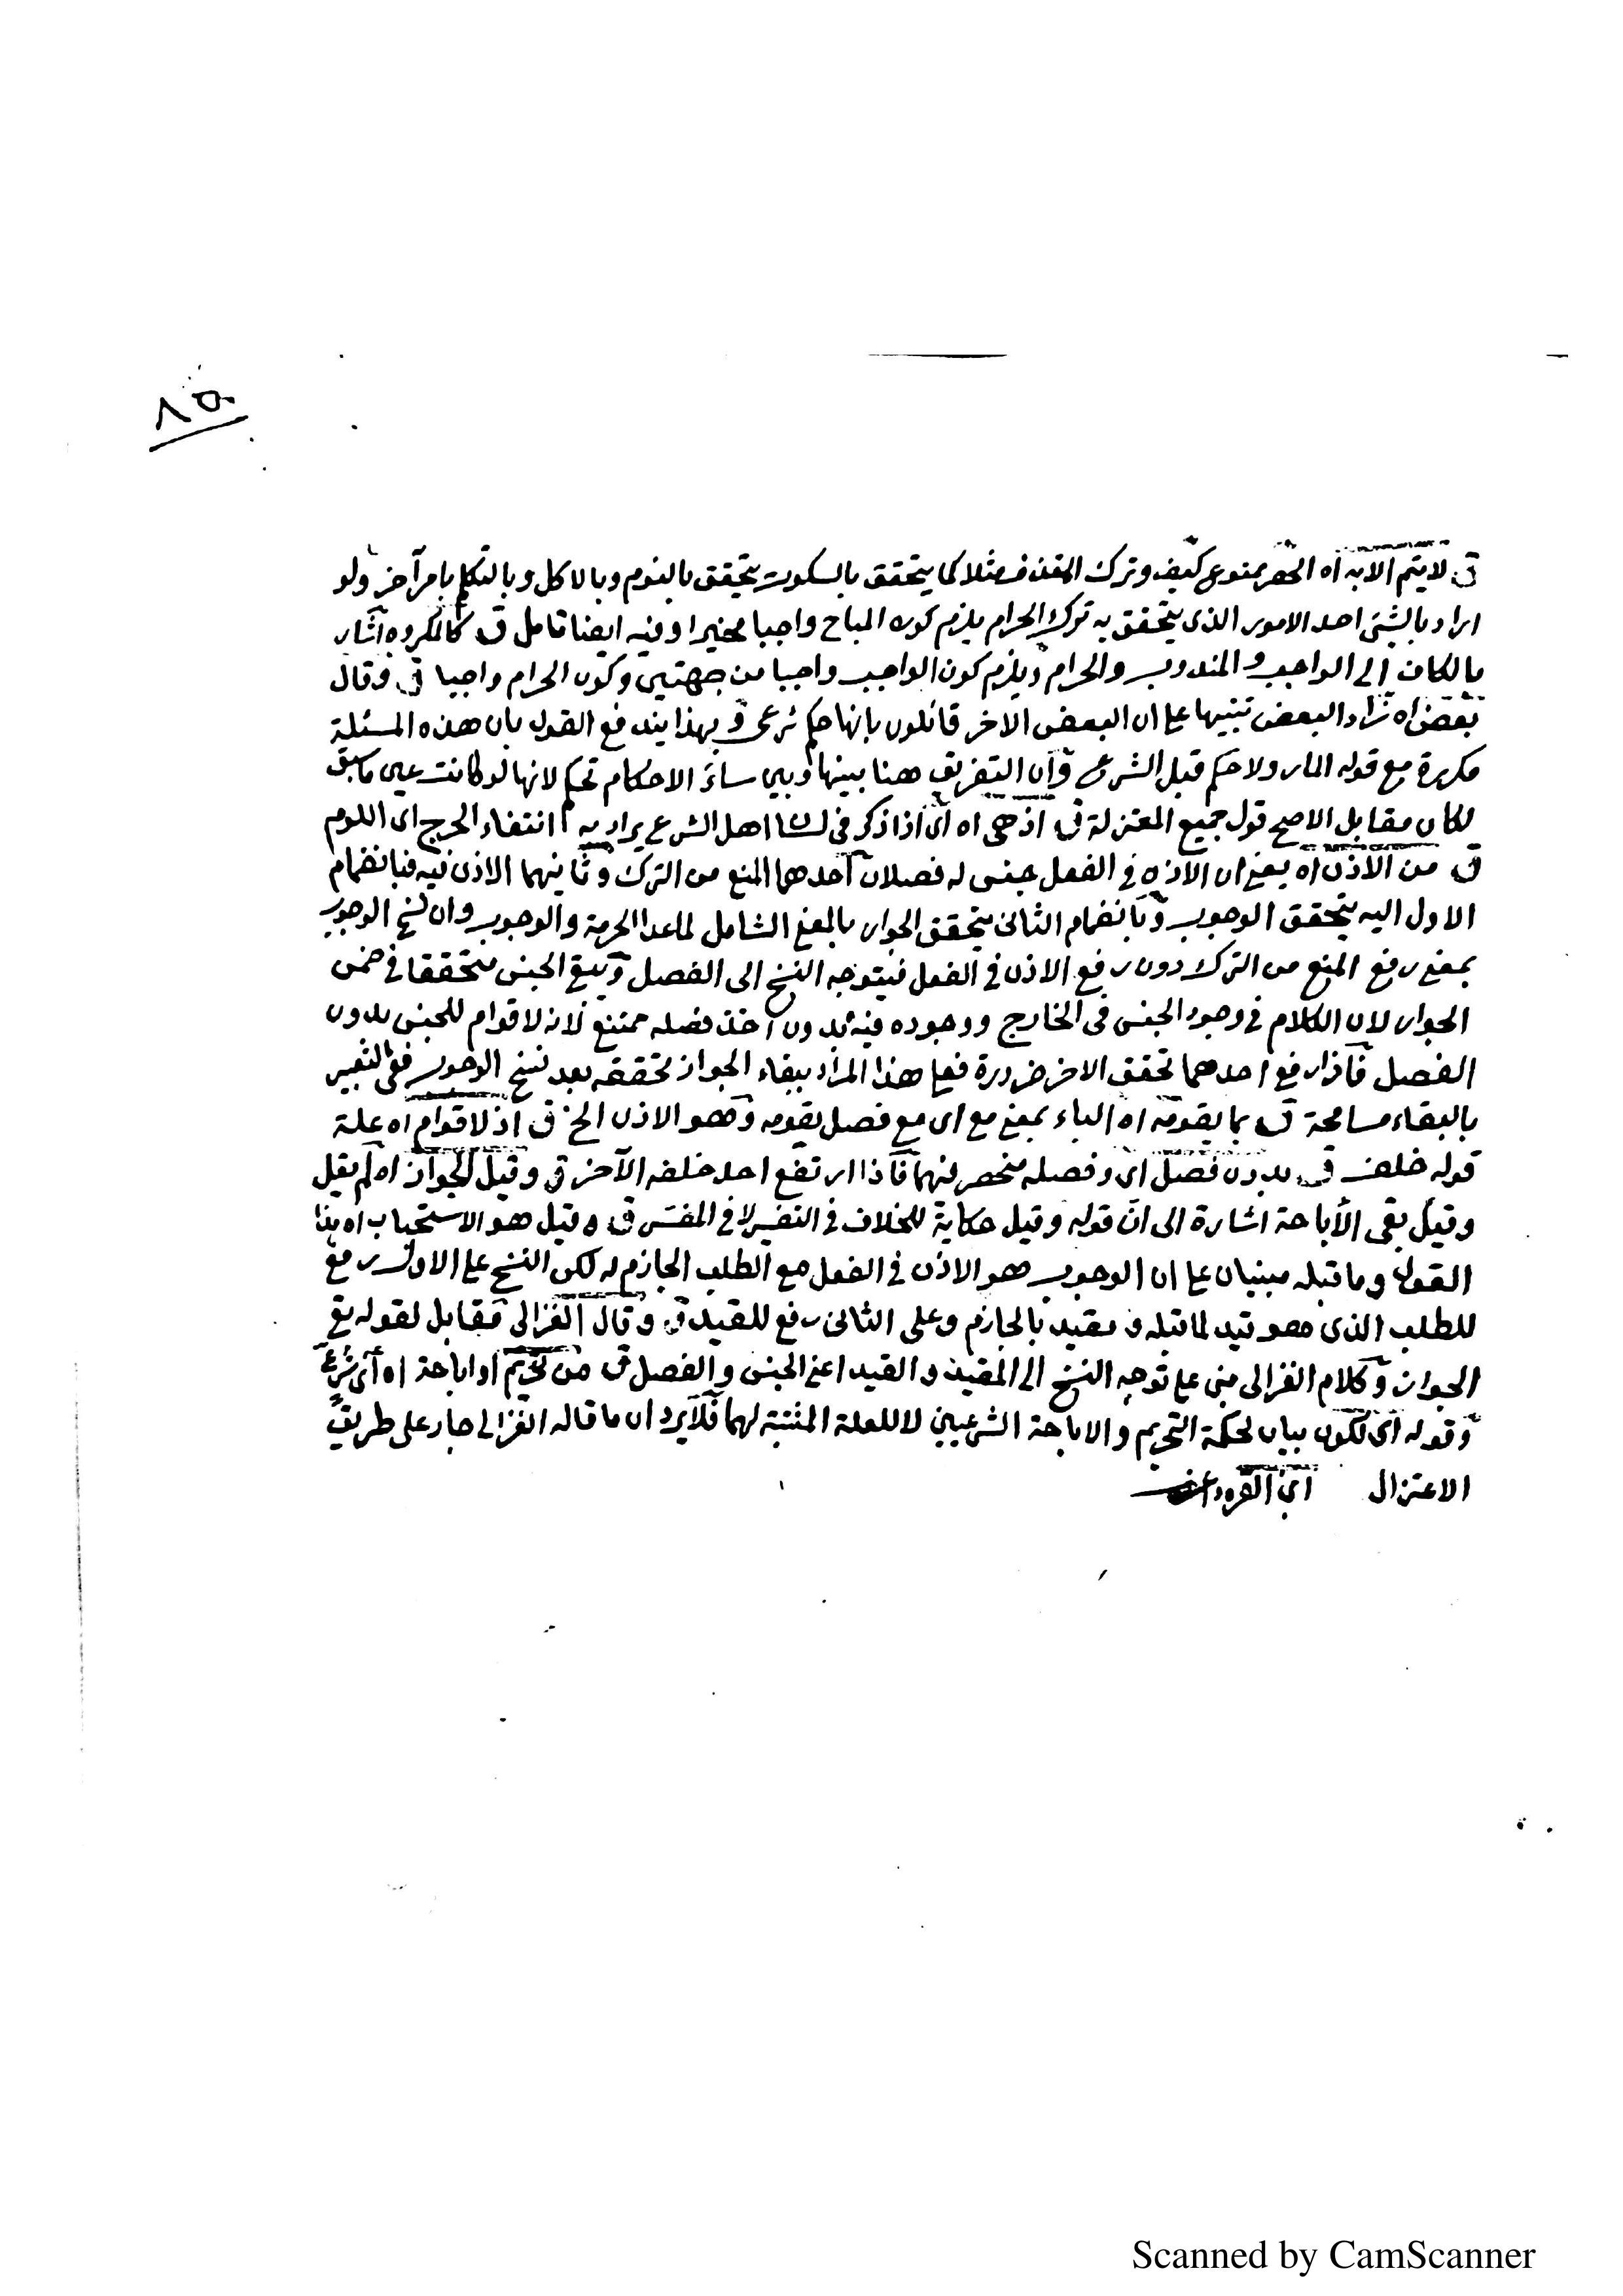 ٨٥
ق لا يتم الا به اه الحصر ممنوع كيف وترك القذف مثلا كما يتحقق بالسكوت يتحقق بالنوم وبالاكل وبالتكلم بامر آخر ولو
اراد بالشئ احد الامور الذى يتحقق به ترك الحرام يلزم كون المباح واجبا مخيرا وفيه ايضا تامل ق كالمكروه اشار
بالكاف الى الواجب والمندوب والحرام ويلزم كون الواجب واجبا من جهتين وكون الحرام واجبا ق وقال
بعض اه زاد البعض تنبيها على ان البعض الاخر قائلون بانها حكم شرعى وبهذا يندفع القول بان هذه المسئلة
مكررة مع قوله المار ولا حكم قبل الشرع وان التفريق هنا بينها وبين سائر الاحكام تحكم لانها لو كانت عين ما سبق
لكان مقابل الاصح قول جميع المعتزلة ق اذ هى اه اى اذا ذكر فى لسان اهل الشرع يراد به انتفاء الحرج اى اللوم
ق من الاذن اه يعنى ان الاذن فى الفعل جنس له فصلان احدهما المنع من الترك وثانيهما الاذن فيه فبانضمام
الاول اليه يتحقق الوجوب وبانضمام الثانى يتحقق الجواز بالمعنى الشامل لماعدا الحرمة والوجوب وان نسخ الوجوب
بمعنى رفع المنع من الترك دون رفع الاذن فى الفعل فيتوجه النسخ الى الفصل ويبقى الجنس متحققا فى ضمن
الجواز لان الكلام فى وجود الجنس فى الخارج ووجوده فيه بدون اخذ فصله ممتنع لانه لا قوام للجنس بدون
الفصل فاذا رفع احدهما تحقق الاخر ضرورة فعلى هذا المراد ببقاء الجواز تحققه بعد نسخ الوجوب ففى التعبير
بالبقاء مسامحة ق بما يقومه اه الباء بمعنى مع اى مع فصل يقومه وهو الاذن الخ ق اذ لا قوام اه علة
قوله خلف ق بدون فصل اى وفصله منحصر فيهما فاذا ارتفع احد خلفه الآخر ق وقيل الجواز اه لم يقل
وقيل بقى الأباحة اشارة الى ان قوله وقيل حكاية للخلاف فى التفسير لا فى المفسر ق وقيل هو الاستحباب اه هذا
القول وما قبله مبنيان على ان الوجوب هو الاذن فى الفعل مع الطلب الجازم له لكن النسخ على الاول رفع
للطلب الذى هو قيد لما قبله و مقيد بالجازم وعلى الثانى رفع للقيد ق وقال الغزالى مقابل لقوله بقى
الجواز وكلام الغزالى مبنى على توجه النسخ الى المقيد والقيد اعنى الجنس والفصل ق من تحريم او اباحة اه اى شرعى
وقوله اى لكون بيان لحكمة التحريم والاباحة الشرعيين لا للعلة المثبتة لهما فلا يرد ان ما قاله الغزالى جار على طريق
الاعتزال
Scanned by CamScanner